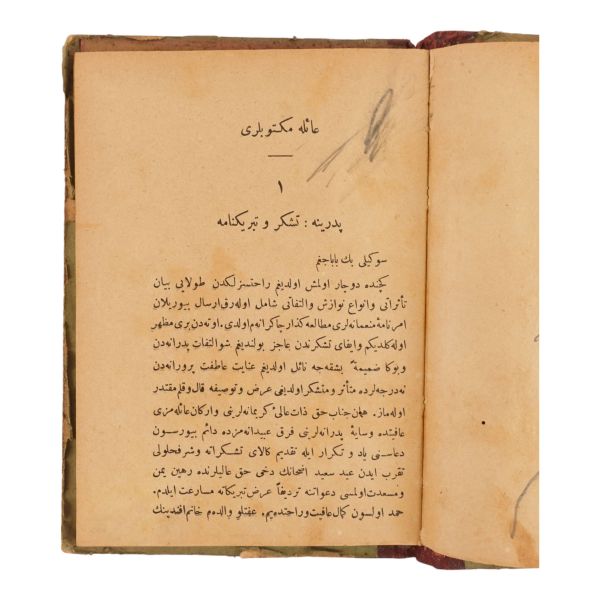 عائله مكتوبلرى
١
پدرينه : تشكر و تبريكنامه
سوكيلى بك باباجغم
كچنده دوچار اولمش اولديغم راحتسزلكدن طولايى بيان
تأثراتى وانواع نوازش والتفاتى شامل اوله رق ارسال بيوريلان
امرنامهٔ منعمانه لرى مطالعه كذار چاكرانه م اولدى. اوته دن برى مظهر
اوله كلديكم وايفاى تشكرندن عاجز بولنديغم شو التفات پدرانه دن
وبوكا ضميمةً بشقه جه نائل اولديغم عنايت عاطفت پرورانه دن
نه درجه لرده متأثر و متشكر اولديغى عرض و توصيفه قال و قلم مقتدر
اوله ماز. همان جناب حق ذات عالئ كريمانه لرينى واركان عائله مزى
عافيتده وسايهٔ پدرانه لرينى فرق عبيدانه مزده دائم بيورسون
دعاسنى ياد و تكرار ايله تقديم كالاى تشكرانه و شرفحلولى
تقرب ايدن عيد سعيد اضحانك دخى حق عاليلرنده رهين يمن
ومسعدت اولمسى دعواتنه ترديفاً عرض تبريكانه مسارعت ايلدم.
حمد اولسون كمال عافيت وراحتده يم. عفتلو والده م خانم افندينك